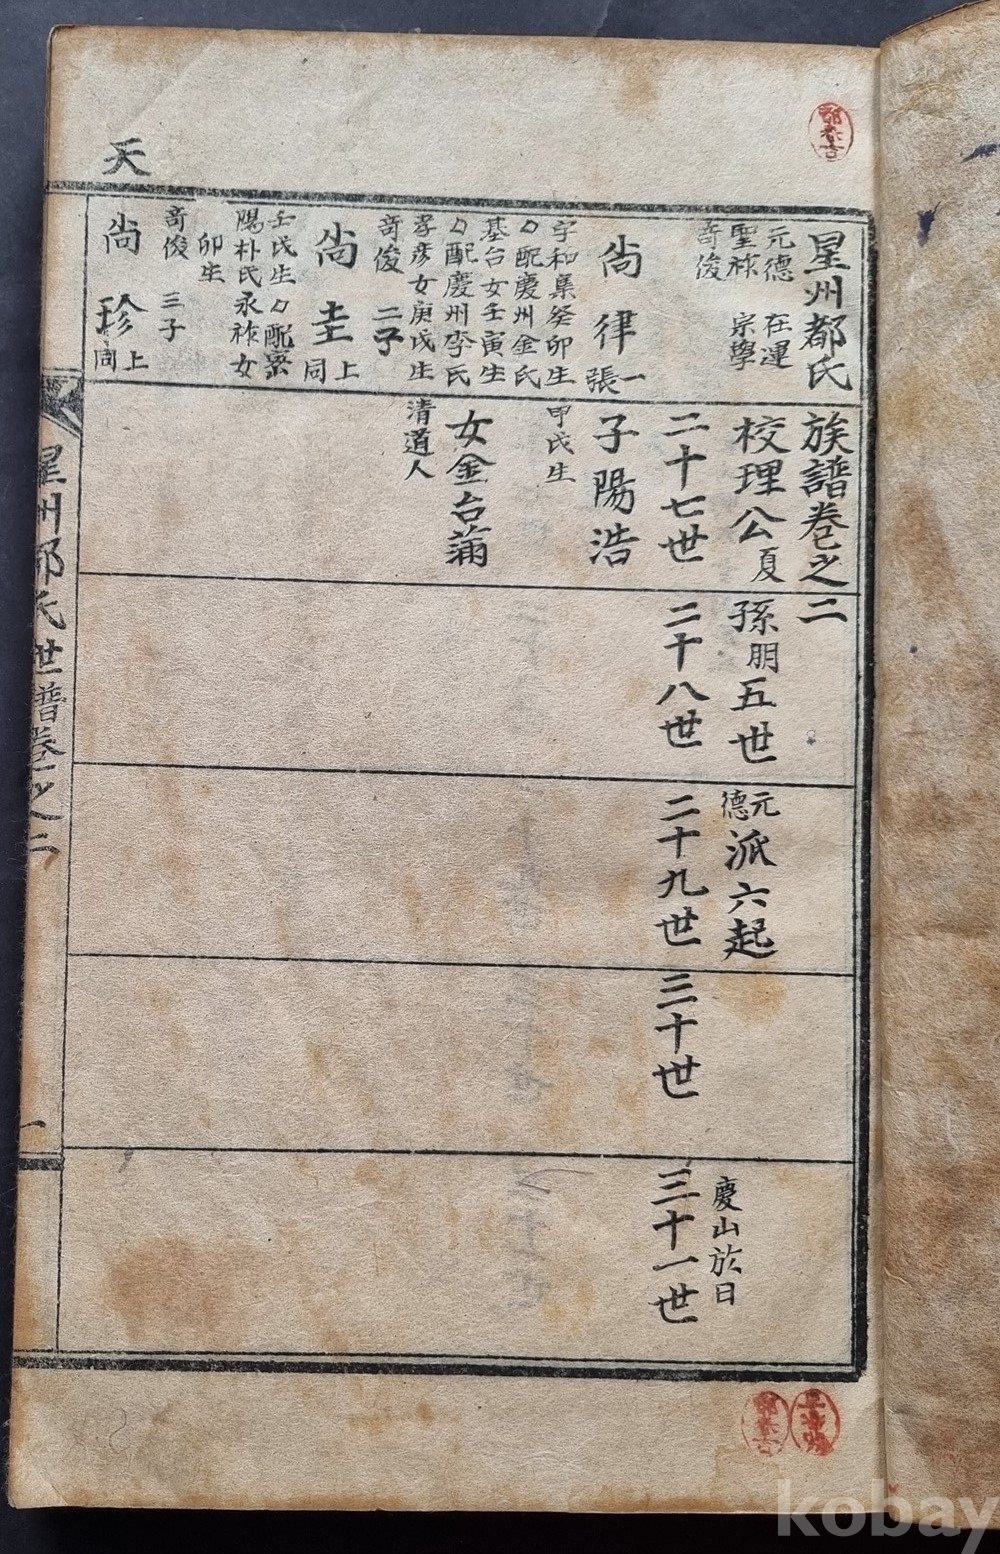 天
星州都氏族譜卷之二
元德 在運
聖祚 宗學
奇俊
校理公夏孫朋五世元德派六起
慶山於日
二十七世
二十八世
二十九世
三十世
三十一世
尙律一張
字和集癸卯生
配慶州金氏
基台女壬寅生
配慶州李氏
孝彦女庚氏生
子陽浩
甲氏生
女金台蒲
清道人
奇俊 二子
尙圭上同
壬氏生 配密
陽朴氏永祚女
卯生
奇俊 三子
尙珍上同
星州都氏世譜卷之二
一
kobay